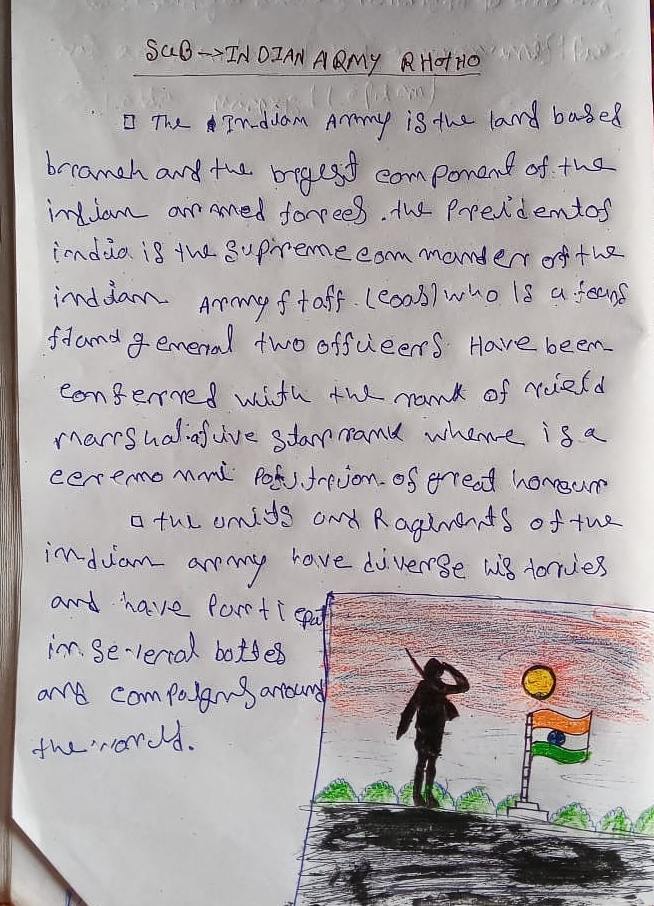 SUB→INDIAN ARMY RHOTHO
The Indian Army is the land based
branch and the bigest component of the
indian aramed forees. the Presidentof
india is the Supreme commander of the
indian Army staff. (coas) who is a
general two officeers Have been
conferred with the rank of
five star rank where is a
of great honour
the units and Ragiments of the
indian army have diverse histories
and have Particpat
in several battes
and campaigns around
the world.